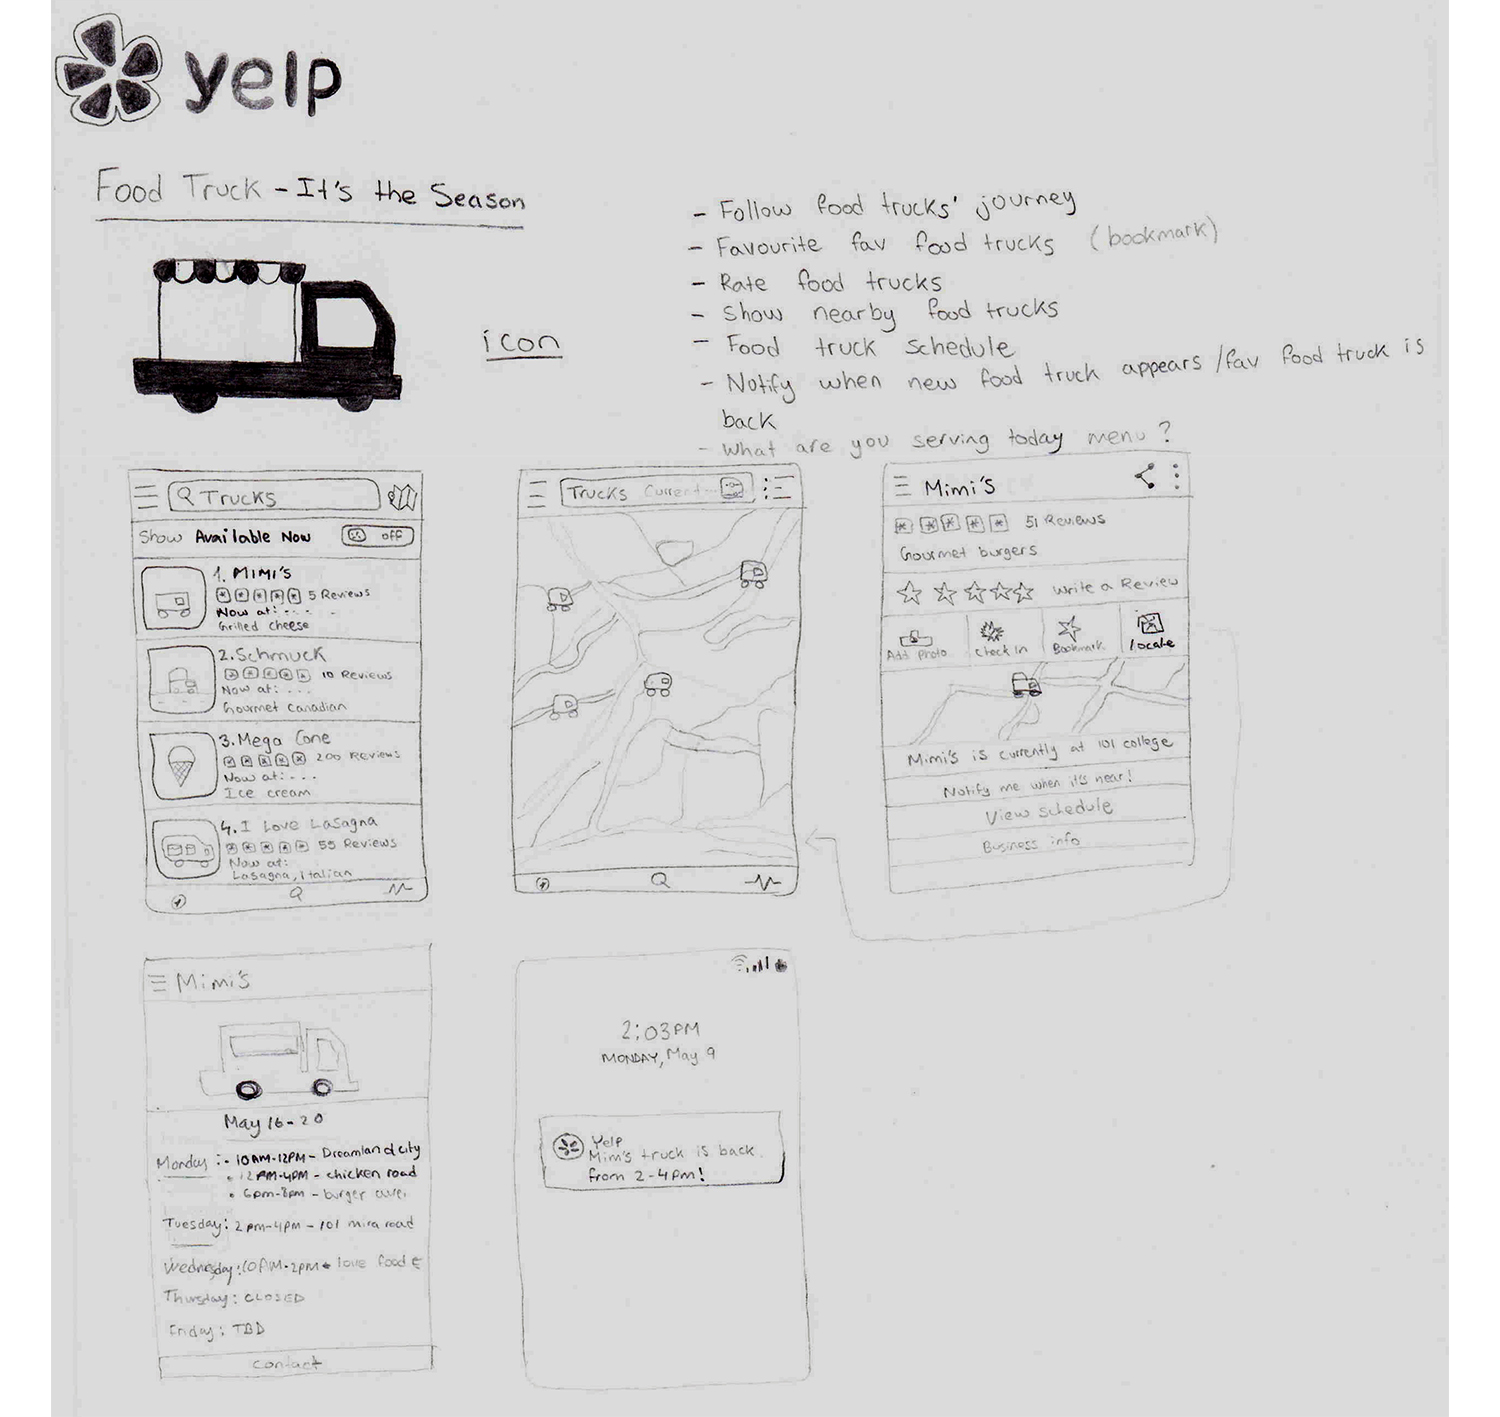 yelp
Food Truck - It's the Season
icon
- Follow food trucks' journey
- Favourite fav food trucks (bookmark)
- Rate food trucks
- Show nearby food trucks
- Food truck schedule
- Notify when new food truck appears /fav food truck is
back
- What are you serving today menu?
Trucks
Show Available Now off
1. MIMI'S
5 Reviews
Now at: - - -
Grilled cheese
2. Schmuck
10 Reviews
Now at: . . .
Gourmet Canadian
3. Mega Cone
200 Reviews
Now at: . . .
Ice cream
4. I Love Lasagna
55 Reviews
Now at:
Lasagna, Italian
Trucks Current...
Mimi's
51 Reviews
Gourmet burgers
Write a Review
Add photo Check In Bookmark locate
Mimi's is currently at 101 college
Notify me when it's near!
View schedule
Business info
Mimi's
May 16-20
Monday :- 10AM-12PM - Dreamland city
• 12PM-4PM - chicken road
• 6pm-8pm - burger
Tuesday: 2pm-4pm - 101 mira road
Wednesday: 10AM-2pm love food
Thursday: CLOSED
Friday: TBD
contact
2:03PM
MONDAY, May 9
Yelp
Mimi's truck is back
from 2-4pm!